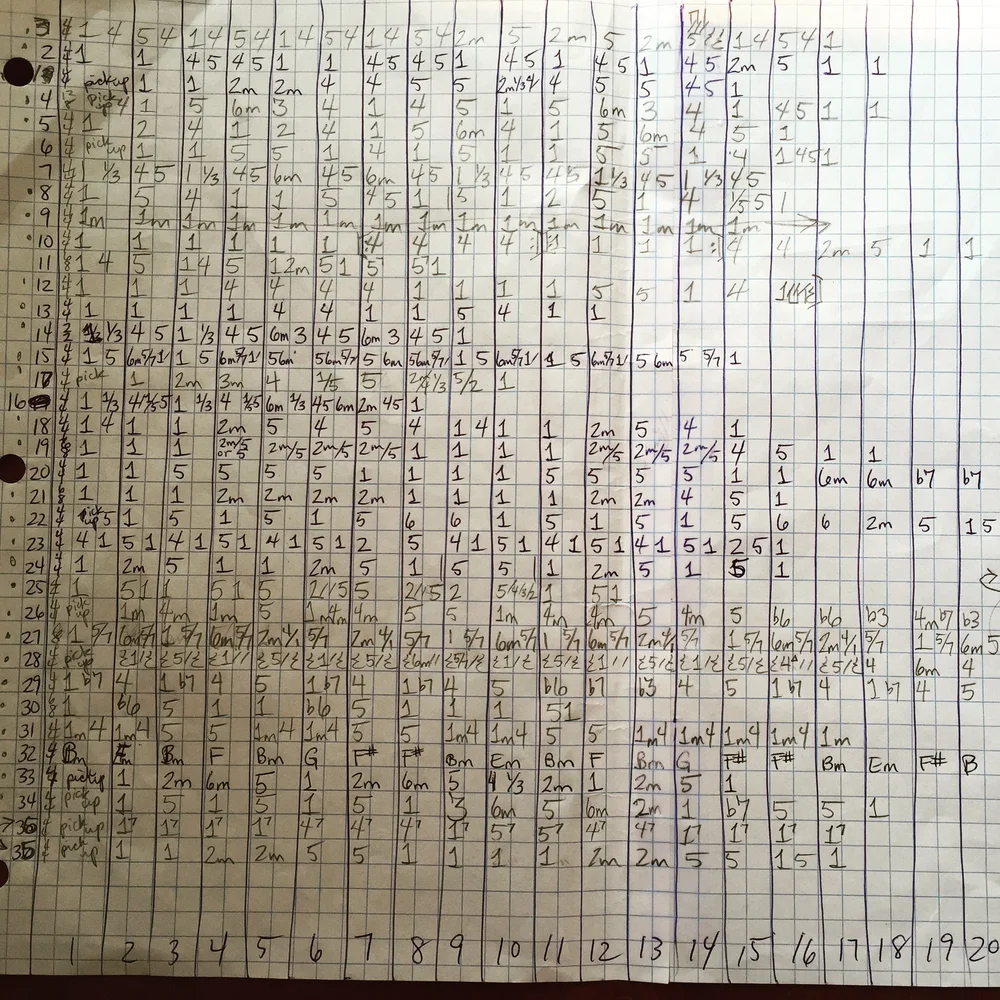 3 4/4 1 4 5 4 1 4 5 4 1 4 5 4 1 4 5 4 2m 5 2m 5 2m 1 4 5 4 1
2 4/4 1 1 4 5 4 5 1 1 4 5 4 5 1 4 5 1 4 5 1 4 5 2m 5 1 1
pickup 1 1 2m 2m 4 4 5 5 4 5 5 4 5 1
4 pick up 4 1 5 6m 3 4 1 4 5 1 5 6m 3 4 1 4 5 1 1
5 4/4 1 2 4 1 2 4 1 5 6m 4 1 5 6m 4 5 1
6 4/4 pick up 1 1 5 5 1 4 1 5 1 1 5 5 1 4 1 4 5 1
7 4/4 1 1/3 4 5 1 1/3 4 5 6m 4 5 6m 4 5 1 1/3 4 5 4 5 1 1/3 4 5 1 1/3 4 5
8 4/4 1 5 4 1 1 5 4 5 1 5 1 2 5 1 4 1/5 5 1
9 4/4 1m 1m 1m 1m 1m 1m 1m 1m 1m 1m 1m 1m 1m 1m 1m
10 4/4 1 1 1 1 1 1 4 4 4 4 :] 1 1 1 1 :] 4 4 2m 5 1 1
11 6/8 1 4 5 1 4 5 1 2m 5 1 5 5 1
12 4/4 1 1 1 4 4 4 4 1 1 1 1 5 5 1 4 1
13 4/4 1 1 1 1 4 4 1 1 5 4 1 1
14 1/3 4 5 1 1/3 4 5 6m 3 4 5 6m 3 4 5 1
15 4/4 1 5 6m 5/7 1/ 1 5 6m 5/7 1/ 5 6m 5 6m 5/7 5 6m 5 6m 5/7 1 5 6m 5/7 1/ 1 5 6m 5/7 1/ 5 6m 5 5/7 1
17 4/4 pick 1 2m 3m 4 1/5 5 1/3 5/2 1
16 4/4 1 1/3 4 1/5 5 1 1/3 4 1/5 5 6m 1/3 4 5 6m 2m 4 5 1
18 4/4 1 4 1 1 2m 5 4 5 4 1 4 1 1 2m 5 4 1
19 6/8 1 1 1 2m/5 or 5 2m/5 2m/5 2m/5 1 1 1 1 2m/5 2m/5 2m/5 4 5 1 1
20 4/4 1 1 5 5 5 5 1 1 1 1 5 5 5 5 1 1 6m 6m b7 b7
21 6/8 1 1 1 2m 2m 2m 2m 1 1 1 1 2m 2m 4 5 1
22 4/4 pick up 5 1 5 1 5 1 5 6 6 1 5 1 5 1 5 6 6 2m 5 1 5
23 4/4 4 1 5 1 4 1 5 1 4 1 5 1 2 5 4 1 5 1 4 1 5 1 4 1 5 1 2 5 1
24 4/4 1 2m 5 1 1 2m 5 1 5 5 1 2m 5 1 5 1
25 4/4 1 5 1 1 5 1 5 5 2 1 5 1
26 4/4 pick up 1m 4m 1m 5 4m 5 5 1m 4m 4m 5 4m 5 b6 b6 b3 4m b7 b3
27 6/8 1 5/7 6m 5/7 1 5/7 6m 5/7 2m 4/1 5/7 2m 4/1 5/7 1 5/7 6m 5/7 1 5/7 6m 5/7 2m 4/1 5/7 1 5/7 6m 5/7 2m 4/1 5/7 1 5/7 6m 5
28 4/4 pick up 4 6m 4
29 4/4 1 b7 4 1 b7 4 5 1 b7 4 1 b7 4 5 b6 b7 b3 4 5 1 b7 4 1 b7 4 5
30 6/8 1 b6 5 1 1 b6 5 1 1 1 5 1
31 4/4 1m 4 1m 4 5 5 1m 4 1m 4 5 5 1m 4 1m 4 5 5 1m 4 1m 4 1m 4 1m 4 1m
32 4/4 Bm Bm F Bm G F# F# Bm Em Bm F Bm G F# F# Bm Em F# B
33 4/4 pickup 1 2m 6m 5 1 2m 6m 5 4 1/3 2m 1 2m 5 1
34 4/4 pick up 1 5 1 5 1 5 1 3 6m 5 6m 2m 1 b7 5 5 1
36 4/4 pick up 1⁷ 1⁷ 1⁷ 1⁷ 4⁷ 4⁷ 4⁷ 1⁷ 5⁷ 5⁷ 4⁷ 4⁷ 1⁷ 1⁷ 1⁷ 1⁷
35 4/4 pick up 1 1 2m 2m 5 5 1 1 1 1 2m 2m 5 5 1 5 1
1 2 3 4 5 6 7 8 9 10 11 12 13 14 15 16 17 18 19 20